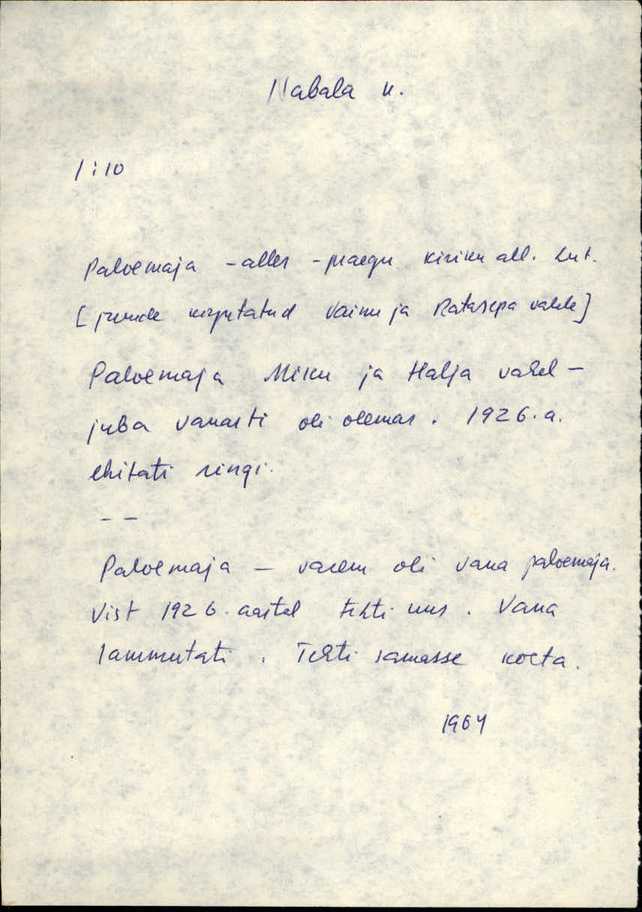 Habala k.
1:10
Palvemaja - alles - praegu kiriku all. Lut.
[juurde kirjutatud Vainu ja Ratasepa vahele]
Palvemaja Miku ja Halja vahel -
juba vanasti oli olemas. 1926. a.
ehitati ringi.
- -
Palvemaja - varem oli vana palvemaja.
Vist 1926. aastal tehti uus. Vana
lammutati. Tehti samasse kohta.
1964